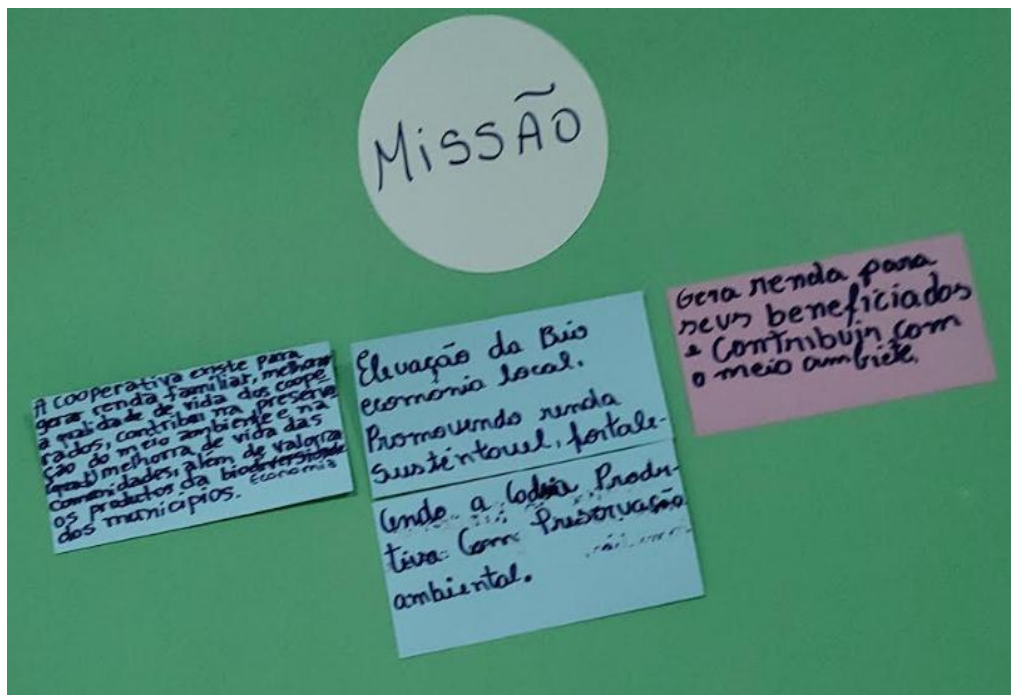 MISSÃO
A cooperativa existe para
gerar renda familiar, melhorar
a qualidade de vida dos coope
rados, contribui na preserva
ção do meio ambiente e na
melhorra de vida das
comunidades, além de valoriza
os produtos da biodiversidade
Economia
dos municípios.
Elevação da Bio
economia local.
Promovendo renda
Sustentavel, fortale-
cendo a Cadeia Produ-
tiva Com Preservação
ambiental.
Gera renda para
seus beneficiados
e Contribuir com
o meio ambiete.